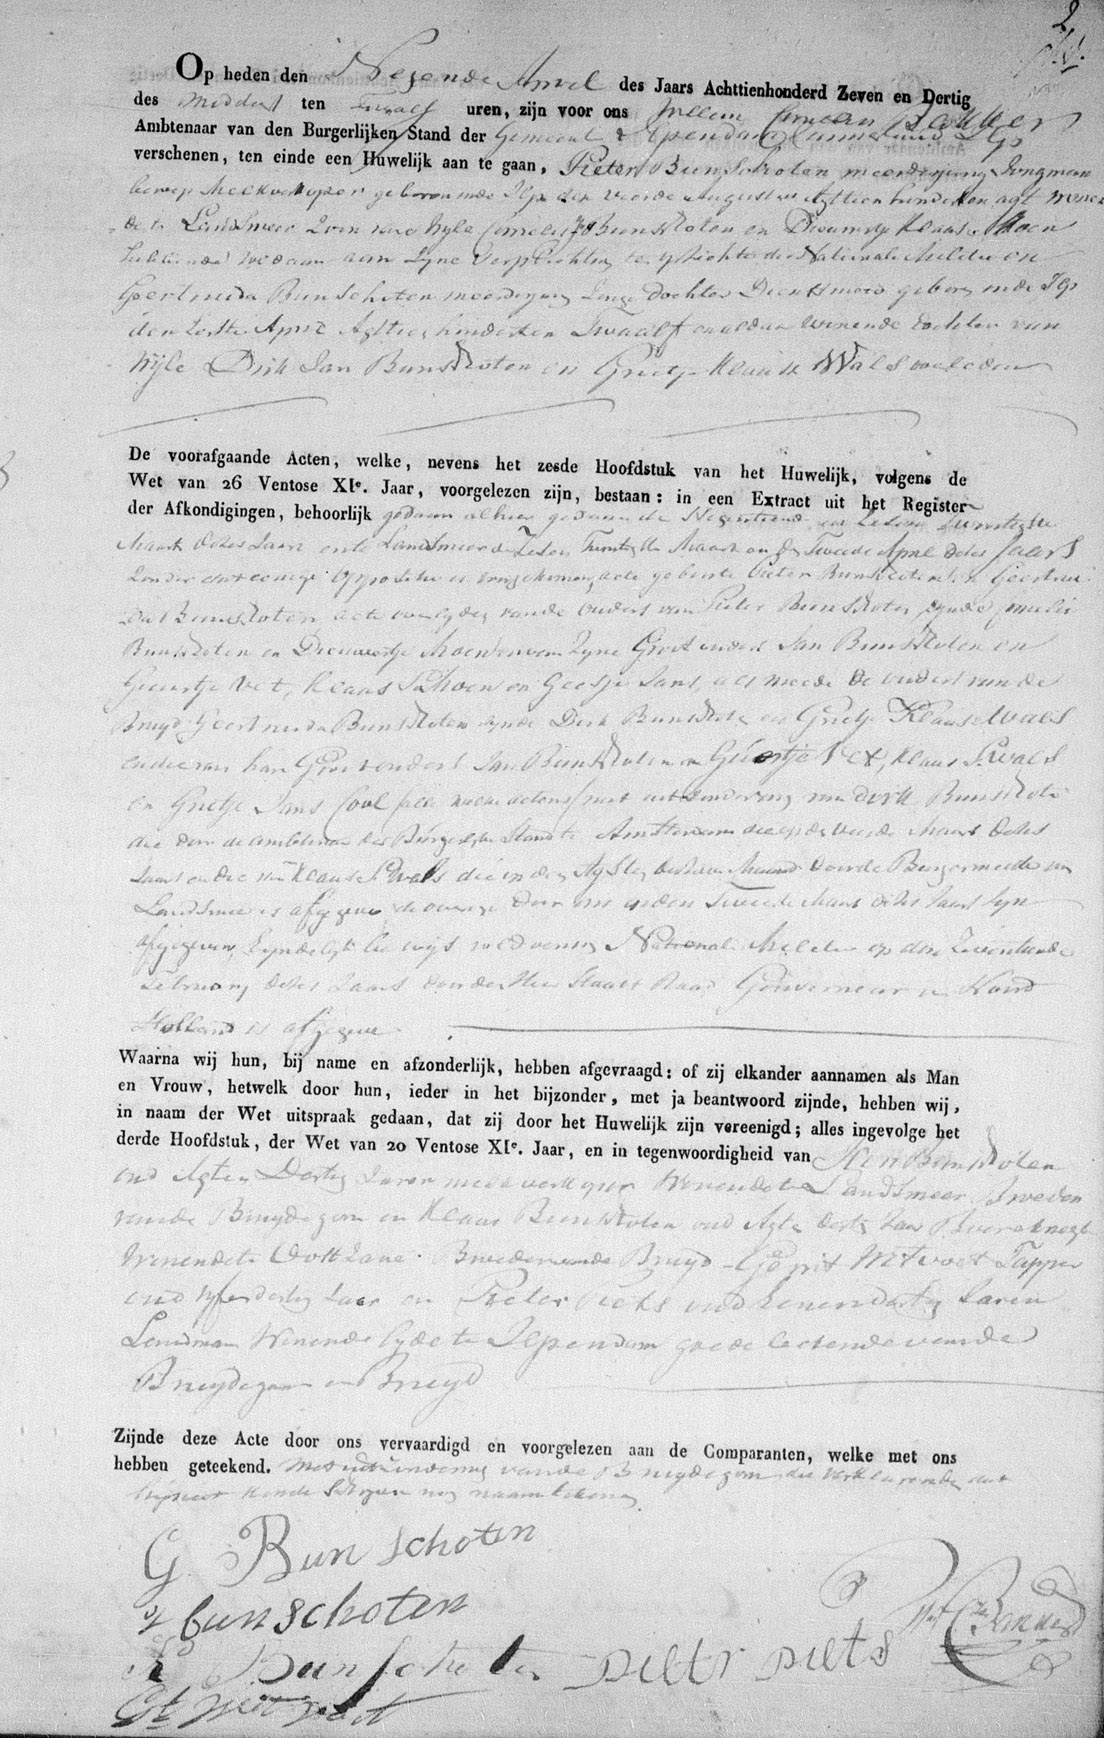 2
Op heden den Negende April des Jaars Achttienhonderd Zeven en Dertig
des Middags ten Twaalf uren, zijn voor ons Willem Cornelis Bakker
Ambtenaar van den Burgerlijken Stand der Gemeente Ilpendam
verschenen, ten einde een Huwelijk aan te gaan, Pieter Bunschoten meerderjarig Jongman
beroep Melkverkoper geboren inde Ilp den vierde Augustus Agttien hondert en agt wonen
de te Landsmeer Zoon van Wyle Cornelis Bunschoten en Dieuwertje Klaas Schoen
voldaan aan Zyne Verplichting ten opzichte der Nationale Militie en
Geertruida Bunschoten meerderjarig Jonge dochter Dienstmeid geboren inde Ilp
den Eerste April Agttien hondert en Twaalf en aldaar wonende dochter van
Wyle Dirk Jan Bunschoten en Grietje Klaas Wals overleden
De voorafgaande Acten, welke, nevens het zesde Hoofdstuk van het Huwelijk, volgens de
Wet van 26 Ventose XIe. Jaar, voorgelezen zijn, bestaan: in een Extract uit het Register
der Afkondigingen, behoorlijk gedaan alhier gedaan de Negentiende en Zesen Twintigste
Maart dezes Jaars en te Landsmeer de Zesen Twintigste Maart en de Tweede April dezes Jaars
Zonder dat eenige oppositie is ingekomen, acte geboorte Pieter Bunschoten en Geertrui
da Bunschoten acte overlyden van de ouders van Pieter Bunschoten zynde Cornelis
Bunschoten en Dieuwertje Schoen en van Zyne Grootouders Jan Bunschoten en
Geertje Vet, Klaas Schoen en Geesje Jans, als meede de ouders van de
Bruyd Geertruida Bunschoten zynde Dirk Bunschoten en Grietje Klaas Wals
en die van haar Grootouders Jan Bunschoten en Geertje Vet, Klaas P. Wals
en Grietje Jans Cool alle met uitzondering van Dirk Bunschoten
die door de ambtenaar des Burgerlyke Stand te Amsterdam die op de vierde Maart dezes
Jaars en die van Klaas P. Wals die in den Agtsten dezer Maand door de Burgermeester van
Landsmeer is afgegeve de overige door ons op den Tweede Maart dezes Jaars Zyn
afgegeven, Eyndelyk bewys voldoening Nationale Militie op den Zeventiende
February dezes Jaars door den Heer Staats Raad Gouverneur in Noord
Holland is afgegeve
Waarna wij hun, bij name en afzonderlijk, hebben afgevraagd: of zij elkander aannamen als Man
en Vrouw, hetwelk door hun, ieder in het bijzonder, met ja beantwoord zijnde, hebben wij,
in naam der Wet uitspraak gedaan, dat zij door het Huwelijk zijn vereenigd; alles ingevolge het
derde Hoofdstuk, der Wet van 20 Ventose XIe. Jaar, en in tegenwoordigheid van Bunschoten
oud Agt en Dertig Jaren melkverkoper Wonende te Landsmeer Broeder
van de Bruydegom en Klaas Bunschoten oud Agt en dertig Jaar Boereknegt
Wonende te Oostzane Broeder van de Bruyd Gerrit Wetvoet Tapper
oud Vyf en dertig Jaar en Pieter Piets oud Zeven en dertig Jaren
Landman Wonende byde te Ilpendam goede bekende van de
Bruydegom en Bruyd
Zijnde deze Acte door ons vervaardigd en voorgelezen aan de Comparanten, welke met ons
hebben geteekend. Met uitzondering van de Bruydegom die verklaarde dat
hy niet konde schryven nog naamtekenen
G Bunschoten
bunschoten
K Bunschoten Pieter Piets W C Bakker
Gt Wetvoet